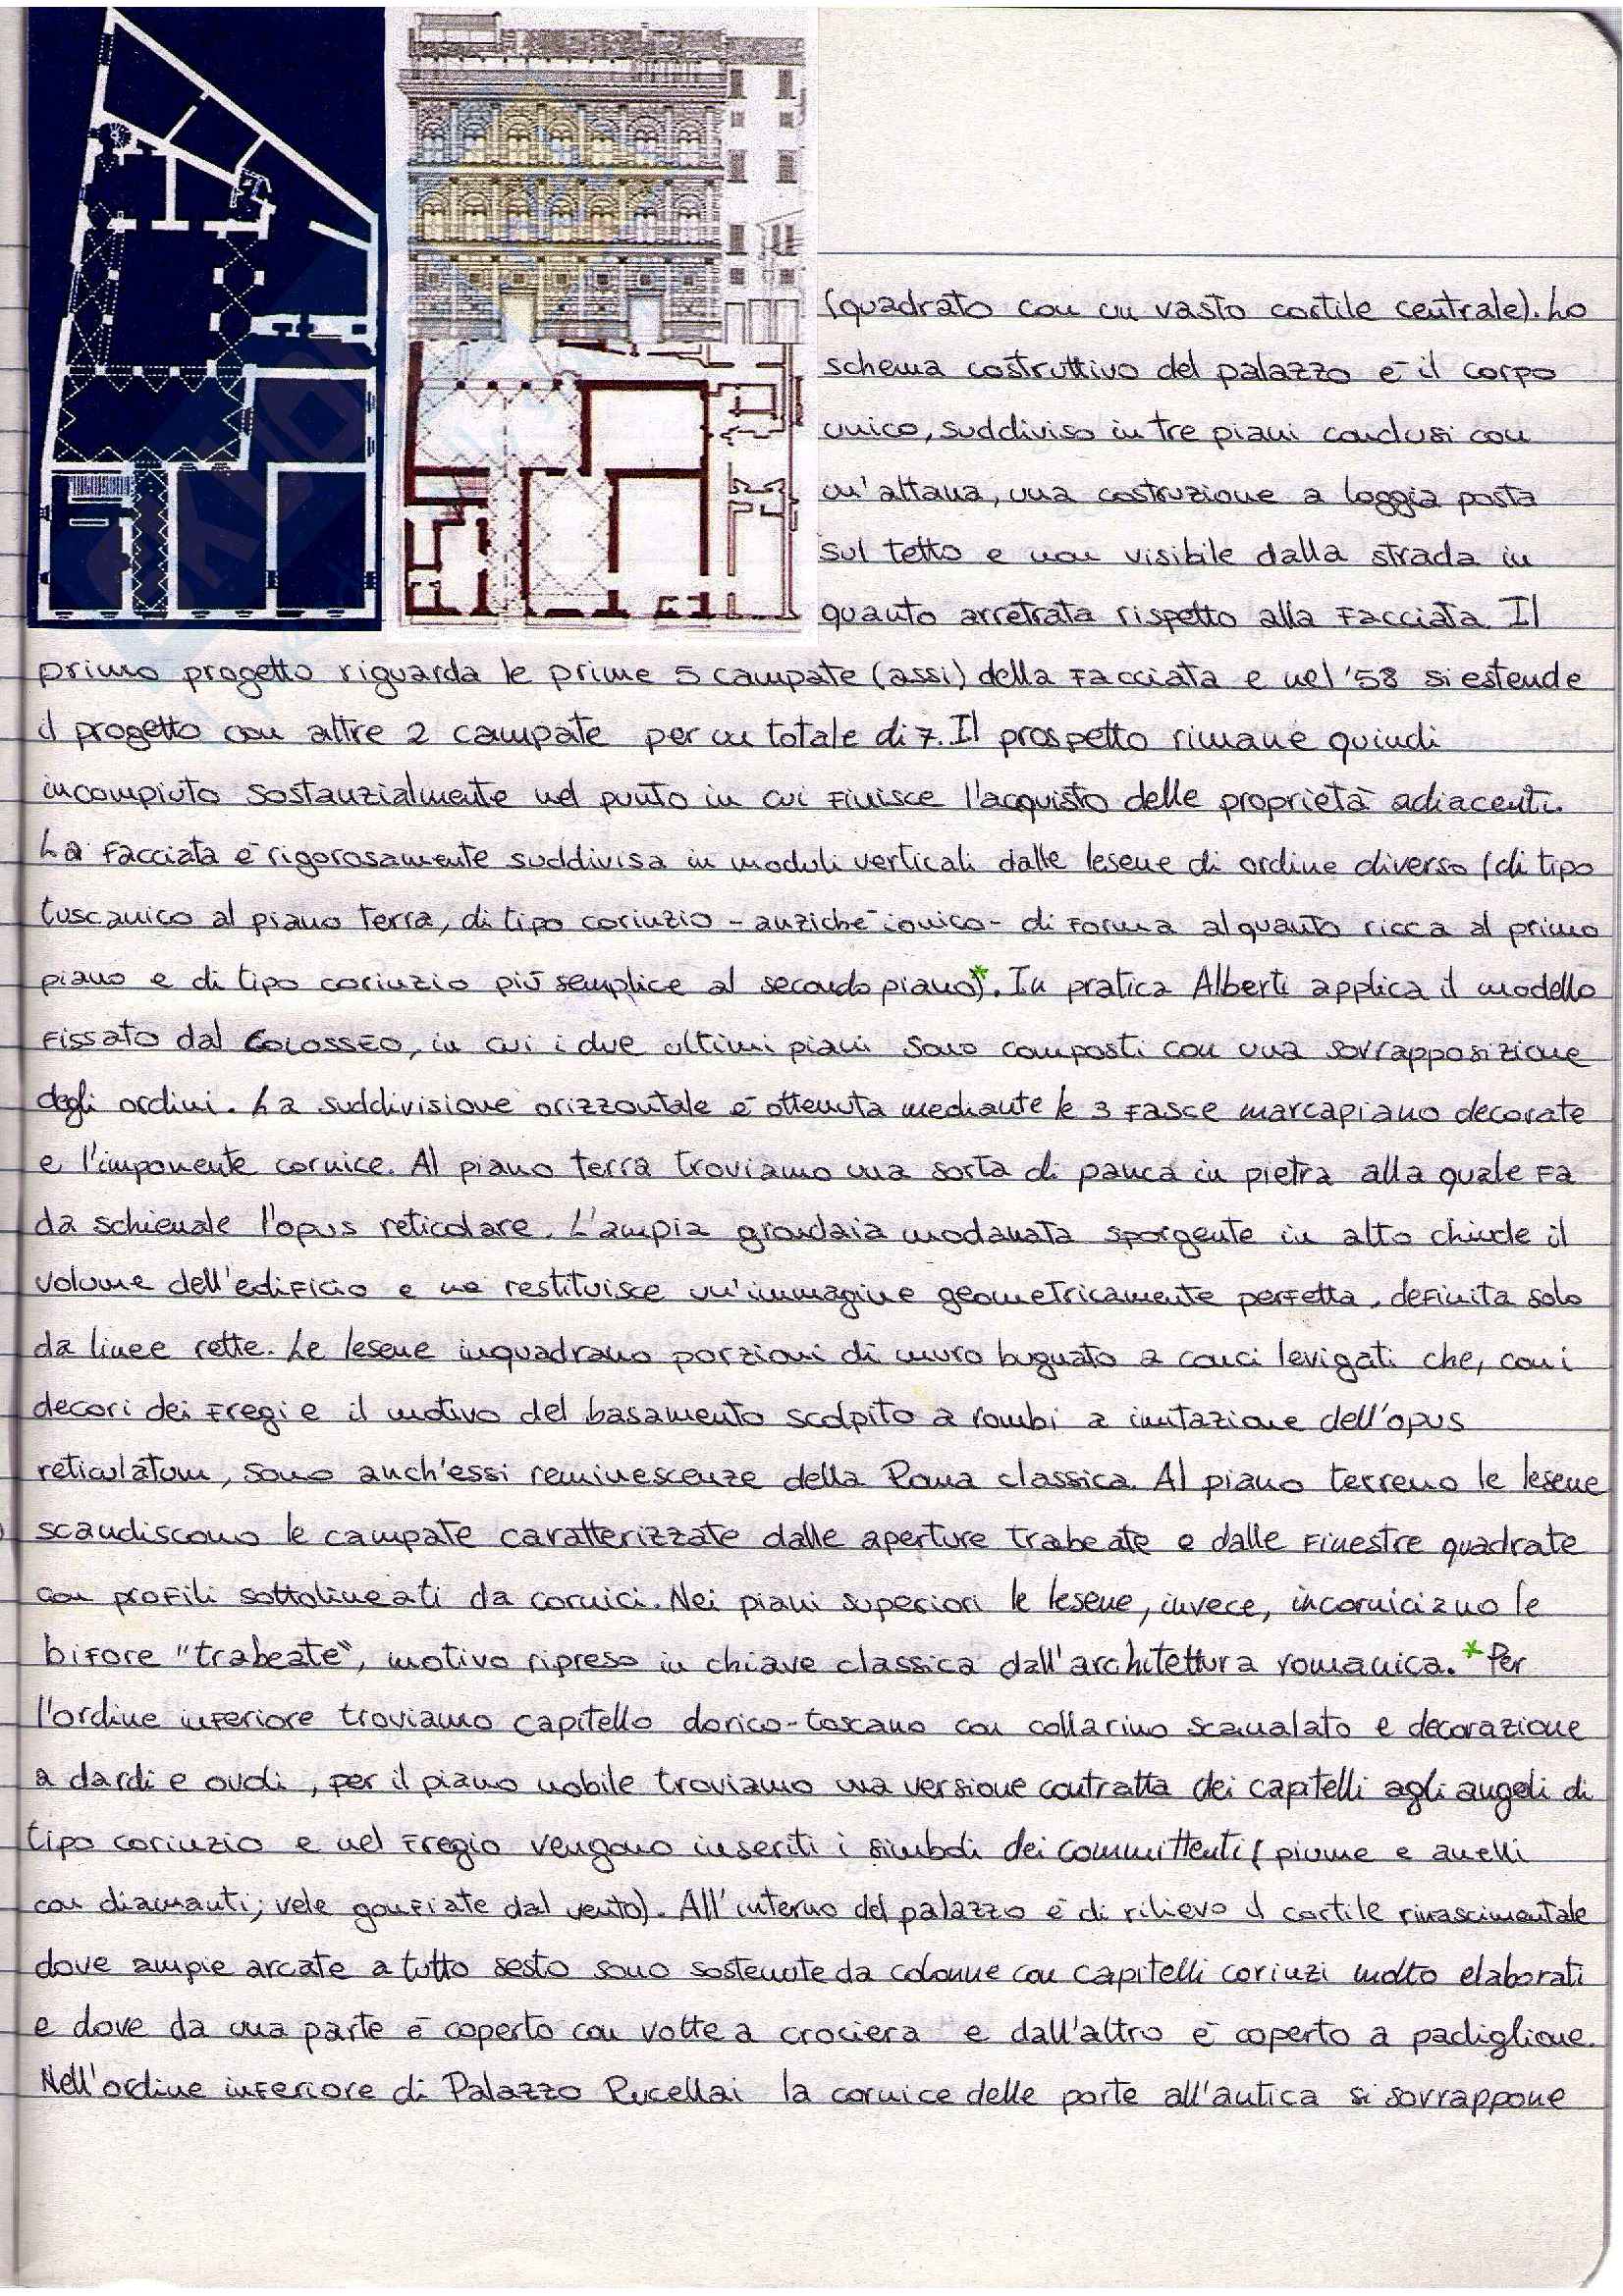 (quadrato con un vasto cortile centrale). Lo
schema costruttivo del palazzo è il corpo
unico, suddiviso in tre piani conclusi con
un'altana, una costruzione a loggia posta
sul tetto e non visibile dalla strada in
quanto arretrata rispetto alla facciata. Il
primo progetto riguarda le prime 5 campate (assi) della facciata e nel '58 si estende
il progetto con altre 2 campate per un totale di 7. Il prospetto rimane quindi
incompiuto sostanzialmente nel punto in cui finisce l'acquisto delle proprietà adiacenti.
La facciata è rigorosamente suddivisa in moduli verticali dalle lesene di ordine diverso (di tipo
tuscanico al piano terra, di tipo corinzio - anziché ionico - di forma alquanto ricca al primo
piano e di tipo corinzio più semplice al secondo piano)*. In pratica Alberti applica il modello
fissato dal COLOSSEO, in cui i due ultimi piani sono composti con una sovrapposizione
degli ordini. La suddivisione orizzontale è ottenuta mediante le 3 fasce marcapiano decorate
e l'imponente cornice. Al piano terra troviamo una sorta di panca in pietra alla quale fa
da schienale l'opus reticolare. L'ampia grondaia modanata sporgente in alto chiude il
volume dell'edificio e ne restituisce un'immagine geometricamente perfetta, definita solo
da linee rette. Le lesene inquadrano porzioni di muro bugnato a conci levigati che, con i
decori dei fregi e il motivo del basamento scolpito a rombi a imitazione dell'opus
reticulatum, sono anch'essi reminescenze della Roma classica. Al piano terreno le lesene
scandiscono le campate caratterizzate dalle aperture trabeate e dalle finestre quadrate
con profili sottolineati da cornici. Nei piani superiori le lesene, invece, incorniciano le
bifore "trabeate", motivo ripreso in chiave classica dall'architettura romanica. *Per
l'ordine inferiore troviamo capitello dorico-toscano con collarino scanalato e decorazione
a dardi e ovoli, per il piano nobile troviamo una versione contratta dei capitelli agli angoli di
tipo corinzio e nel fregio vengono inseriti i simboli dei committenti (piume e anelli
con diamanti; vele gonfiate dal vento). All'interno del palazzo è di rilievo il cortile rinascimentale
dove ampie arcate a tutto sesto sono sostenute da colonne con capitelli corinzi molto elaborati
e dove da una parte è coperto con volte a crociera e dall'altro è coperto a padiglione.
Nell'ordine inferiore di Palazzo Rucellai la cornice delle porte all'antica si sovrappone